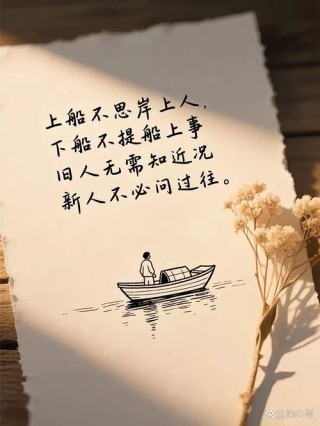 上船不思岸上人，
下船不提船上事
旧人无需知近况
新人不必问过往。